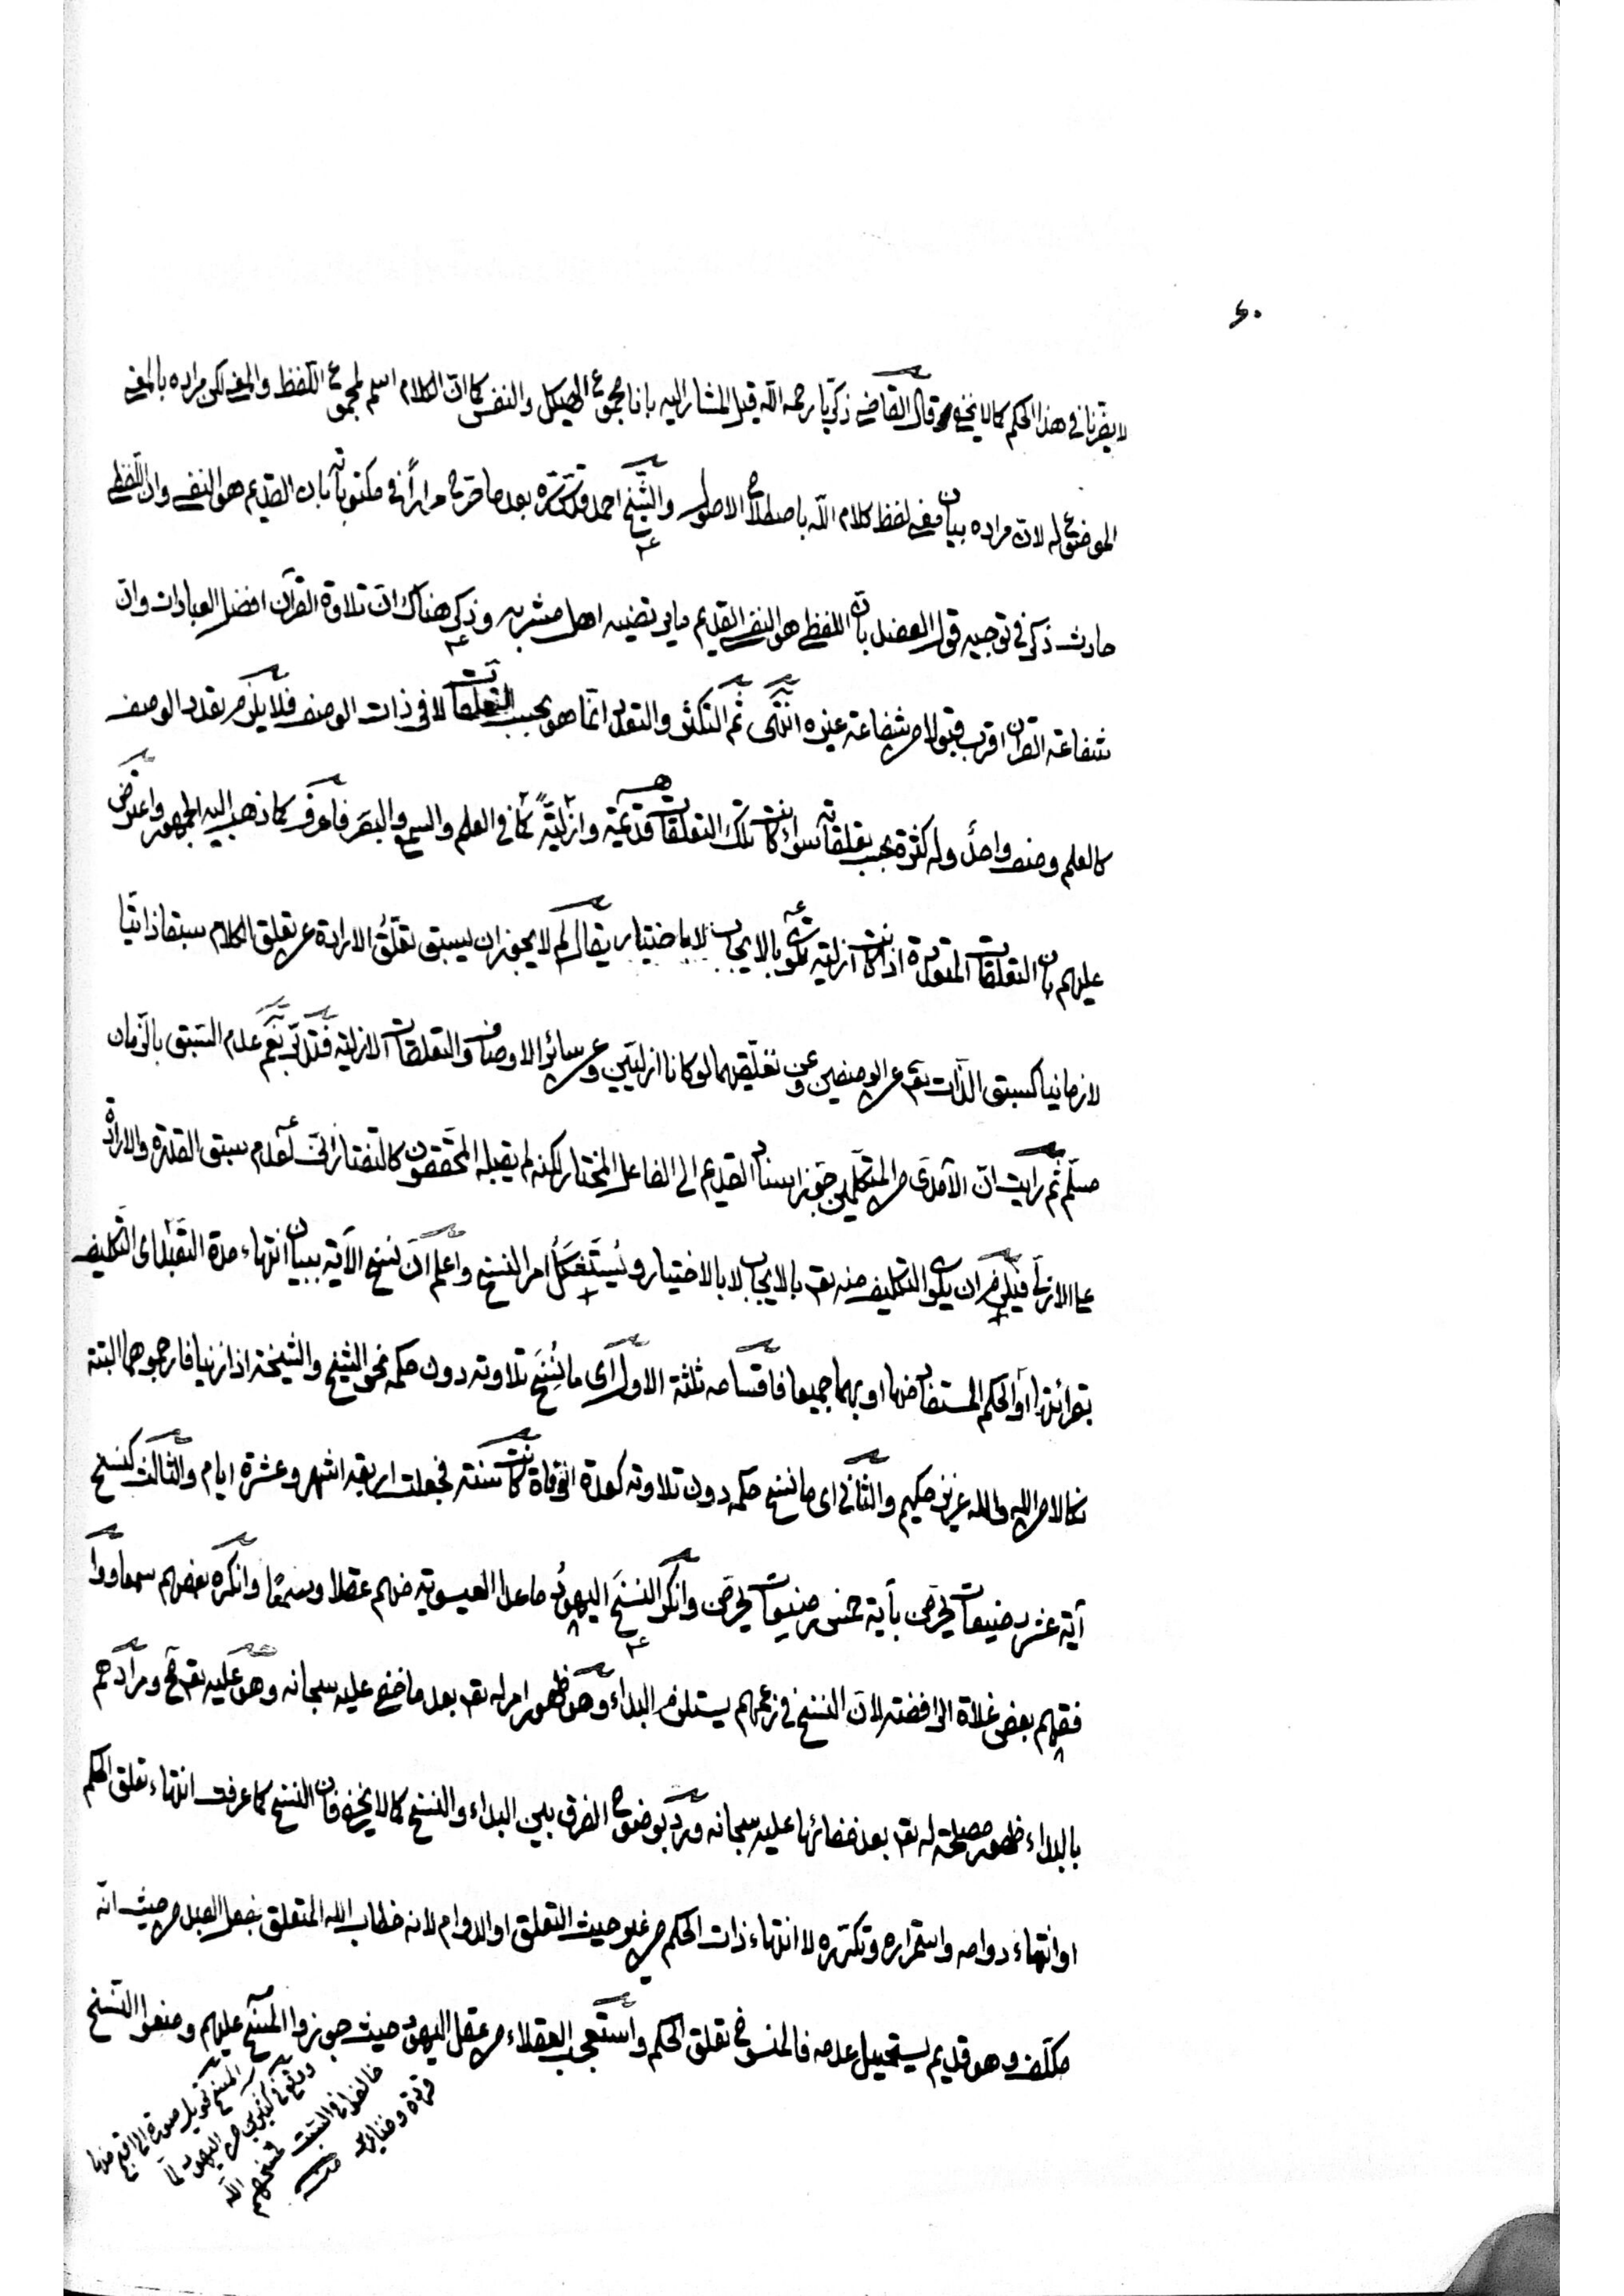 ٤٠
لا يضرنا في هذا الحكم كما لا يخفى وقال القاضي زكريا رحمه الله قيل المشار اليه بانا مجموع الهيكل والنفس كما ان الكلام اسم لمجموع اللفظ والمعنى لكن مراده بالمعنى
الموضوع له لان مراده بيان معنى لفظ كلام الله باصطلاح الاصول والشيخ احمد قدّس سره بعد ما صرح مرارًا في مكتوباته بان القديم هو النفسي وان اللفظي
حادث ذكر في توجيه قول العضد بان اللفظ هو النفسي القديم ما يرتضيه اهل مشربه وذكر هناك ان تلاوة القرآن افضل العبادات وان
شفاعة القرآن اقرب قبولا من شفاعة غيره انتهى ثم التكثر والتعدد انما هو بحسب التعلقات لا في ذات الوصف فلا يلزم تعدد الوصف
كالعلم وصف واحدٌ وله كثرة بحسب تعلقاته سواء كانت تلك التعلقات قديمة وازلية كما في العلم والسمع والبصر فاعرف كما ذهب اليه الجمهور واعترض
عليهم بان التعلقات المتعددة اذا كانت ازلية تكون بالايجاب لا باختيار يقال لم لا يجوز ان يسبق تعلّقُ الارادة عن تعلق الكلام سبقا ذاتيا
لا زمانيا كسبق الذات تع عن الوصفين وعن تعلقيهما لو كانا ازليين وعن سائر الاوصاف والتعلقات الازلية فتدبّر نعم عدم السبق بالزمان
مسلّم ثم رايت ان الآمدى من المتكلمين جوّز اسناد القديم الى الفاعل المختار لكنه لم يقبله المحققون كالتفتازانى لعدم سبق القدرة والارادة
على الازلى فيلزم ان يكون التكليف منه تع بالايجاب لا بالاختيار ويُستَشكَلُ امر النسخ واعلم انّ نسخ الآية ببيان انتهاء مدة التعبّد اى التكليف
بقرائتها او الحكم المستفاد منها او بهما جميعا فاقسامه ثلثة الاول اى ما نُسِخَ تلاوته دون حكمه نحو الشيخ والشيخة اذا زنيا فارجموهما البتة
نكالا من الله والله عزيز حكيم والثانى اى ما نسخ حكمه دون تلاوته كعدة الوفاة كانت سنة فجعلت اربعة اشهر وعشرة ايام والثالث كنسخ
آية عشر رضيعات يحرّمن بآية خمس رضيعات يحرّمن وانكر النسخَ اليهودُ ما عدا العيسوية منهم عقلا وسمعًا وانكره بعضهم سمعا ووا
فقهم بعض غلاة الرافضة لان النسخ في زعمهم يستلزم البداء وهو ظهور امر له تع بعد ما خفي عليه سبحانه وهو عليه تع مح ومرادهم
بالبداء ظهور مصلحة له تع بعد خفائها عليه سبحانه ورُدّ بوضوح الفرق بين البداء والنسخ كما لا يخفى فان النسخ كما عرفت انتهاء تعلق الحكم
او انتهاء دوامه واستمراره وتكرره لا انتهاء ذات الحكم من غير حيث التعلق او الدوام لانه خطاب الله المتعلق بفعل العبد من حيث انه
مكلّف وهو قديم يستحيل عدمه فالمنسوخ تعلق الحكم واستعجب العقلاء من عقل اليهود حيث جوزوا المسخ عليهم ومنعوا النسخ
المسخ تحويل صورة الى اقبح منها
وقع في كثيرين من اليهود لمّا
خالفوا في السبت فمسخهم الله
قردة وخنازير منه